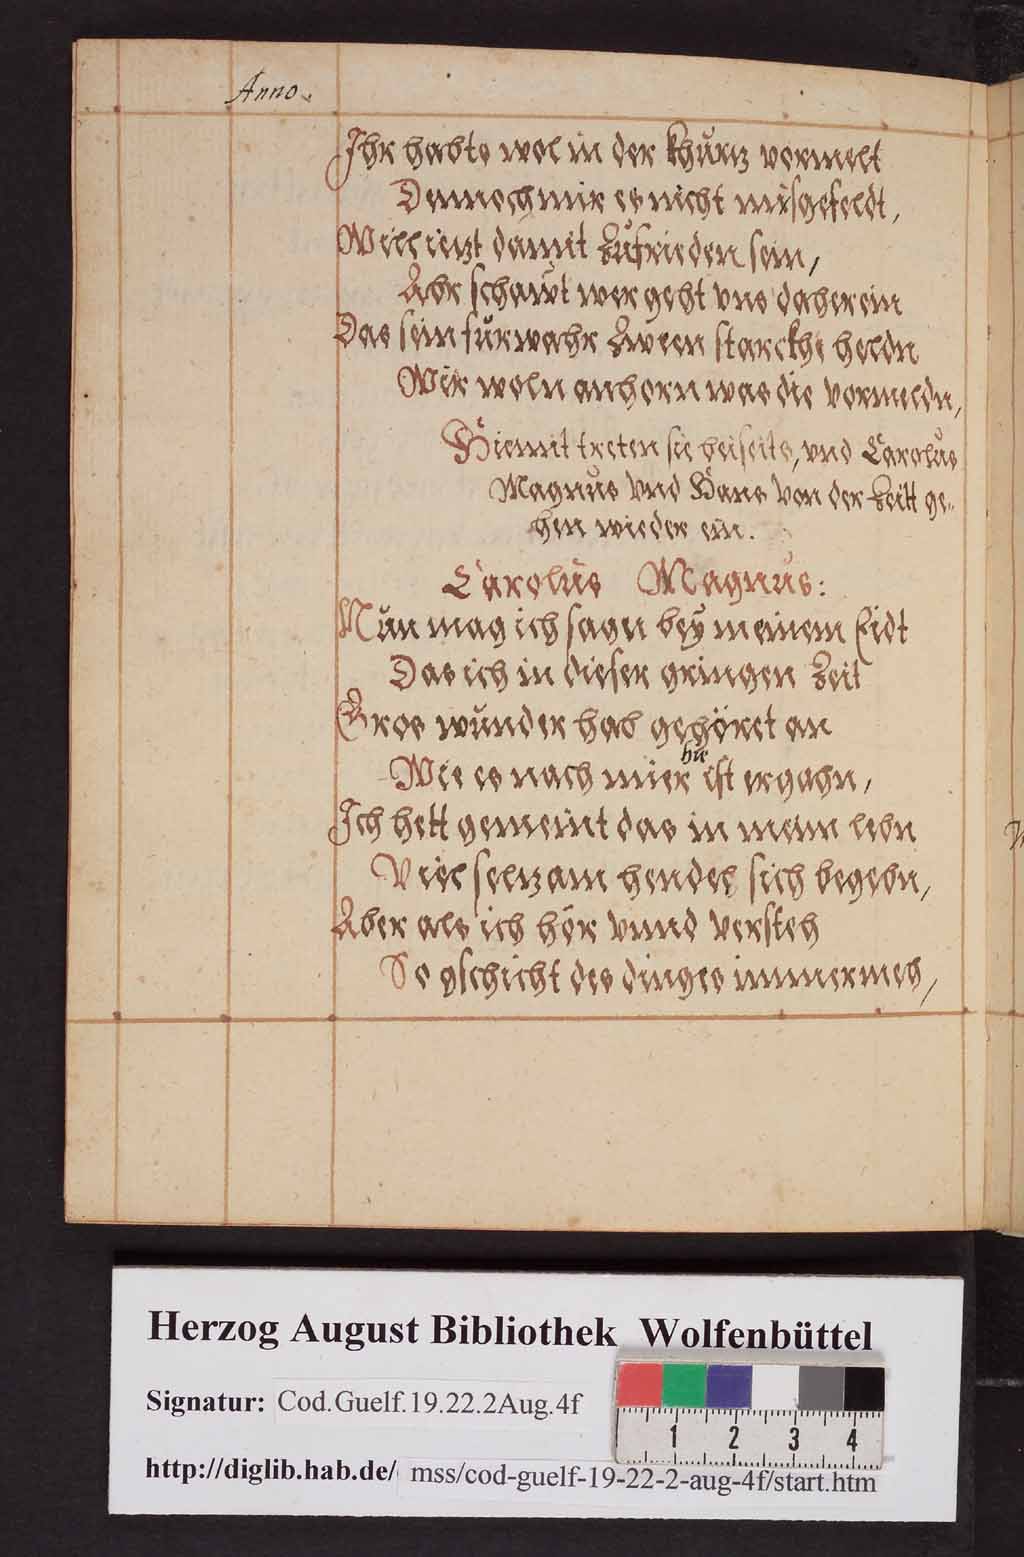 Anno.
Ihr habts wol in der khürtz vormelt
Dennoch mir es nicht misgefeldt,
Will ietzt damit Zufrieden sein,
Abr schawt wer geht vns daherein
Das sein fürwahr Zween starckhe heldn
Wir woln anhorn was die vormeldn,
Hiemit treten sie beiseits, vnd Carolus
Magnus vnd Hans von der Zeitt ge-
hen wieder ein.
Carolus Magnus:
Nun mag ich sagn bey meinem Eidt
Das ich in dieser gringen Zeit
Gros wunder hab gehöret an
hie
Wie es nach mier ist ergahn,
Ich hett gemeint das in meim lebn
Viel seltzam hendel sich begebn,
Aber als ich hör vnnd versteh
So gschicht des dinges immermeh,
Herzog August Bibliothek Wolfenbüttel
Signatur: Cod.Guelf.19.22.2Aug.4f
1 2 3 4
http://diglib.hab.de/ mss/cod-guelf-19-22-2-aug-4f/start.htm